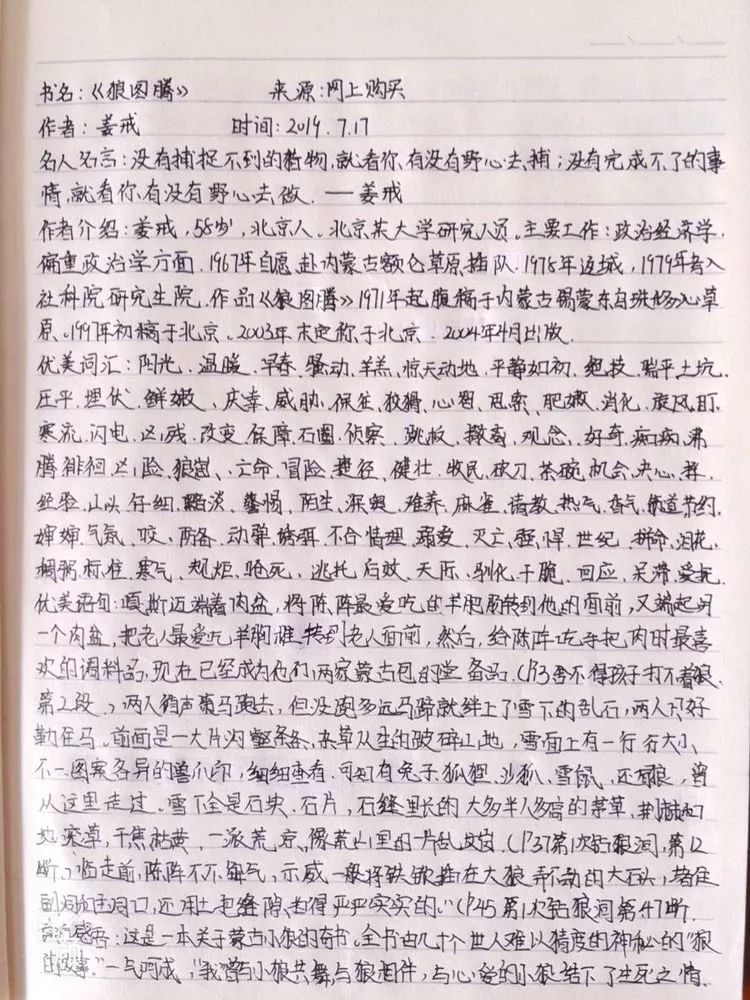 书名:《狼图腾》 来源:网上购买
作者:姜戎 时间:2019.7.17
名人名言:没有捕捉不到的猎物,就看你有没有野心去捕;没有完成不了的事
情,就看你有没有野心去做.——姜戎
作者介绍:姜戎,58岁,北京人。北京某大学研究人员。主要工作:政治经济学,
偏重政治学方面.1967年自愿赴内蒙古额仑草原插队.1978年返城,1979年考入
社科院研究生院.作品《狼图腾》1971年起腹稿于内蒙古锡蒙东乌珠穆沁草
原.1997年初稿于北京.2003年末定稿于北京.2004年4月出版.
优美词汇:阳光、温暖、早春、骚动、羊羔、惊天动地、平静如初、绝技、踹平土坑、
压平、埋伏、鲜嫩、庆幸、威胁、保佑、狡猾、心智、思索、肥嫩、消化、旋风、盯、
寒流、闪电、凶残、改变、保障、石圈、侦察、跳板、探离、观念、好奇、痴痴、沸
腾、徘徊、凶险、狼崽、亡命、冒险、捷径、健壮、牧民、砍刀、茶碗、机会、决心、
经验、山头、仔细、黯淡、警惕、陌生、深奥、难养、麻雀、请教、热气、香气、节约、
婶婶、气氛、咬、防备、动弹、诱饵、不合情理、溺爱、灭亡、强悍、世纪、拼命、泪花、
稠粥、标准、寒气、规矩、呛死、逃托、后效、天际、驯化、干脆、回应、呆滞、爱抚.
优美语句:嘎斯迈端着肉盆,将陈阵最爱吃的羊肥肠转到他的面前,又端起另
一个肉盆,把老人最爱吃羊胸椎转到老人面前,然后,给陈阵吃手把肉时最喜
欢的调料品,现在已经成为他们两家蒙古包的常备品.(P13舍不得孩子打不着狼.
第2段.)两人循声策马跑去,但没跑多远马蹄就绊上了雪下的乱石,两人只好
勒住马.前面是一大片沟壑条条,杂草丛生的破碎山地,雪面上有一行行大小
不一图案各异的兽爪印,细细查看,可知有兔子,狐狸,沙狐,雪鼠,还有狼,曾
从这里走过.雪下全是石块、石片,石缝里长的大多半人多高的茅草,荆棘和
地滚草,干焦枯黄,一派荒凉,像荒山里的一片乱坟岗.(P37第1次钻狼洞,第12
断.)临走前,陈阵不解气,示威一般将铁锹插在大狼弄不动的大石头,堵住
洞口,还用土把缝隙封得严严实实的."(P45第1次钻狼洞第47断.
感悟:这是一本关于蒙古小狼的奇书.全书由几十个世人难以猜度的神秘的"狼
的故事."一气呵成,"我曾与小狼共舞,与狼相伴,与心爱的小狼结下了生死之情.